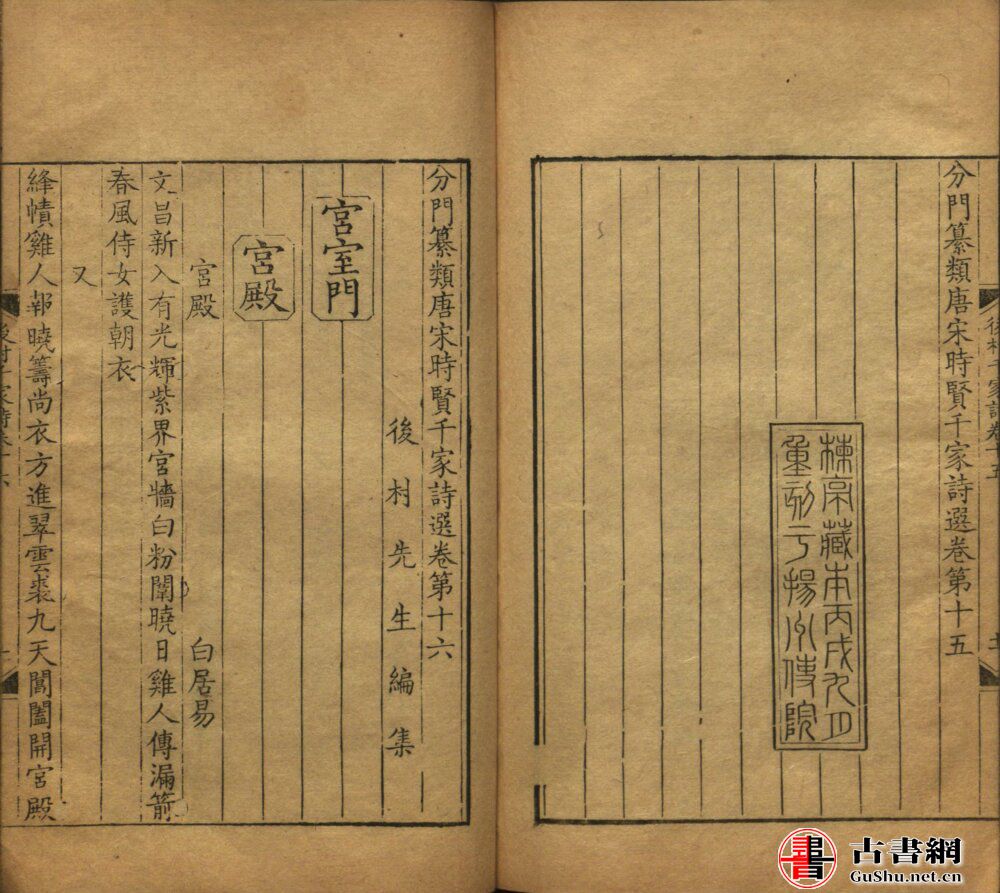 分門纂類唐宋時賢千家詩選卷第十五
楝亭藏本丙戌九月
重刻于揚州使院
分門纂類唐宋時賢千家詩選卷第十六
後村先生編集
宮室門
宮殿
宮殿 白居易
文昌新入有光輝紫界宮牆白粉闈曉日雞人傳漏箭
春風侍女護朝衣
又
絳幘雞人報曉籌尚衣方進翠雲裘九天閶闔開宮殿
書
古書網
GuShu.net.cn